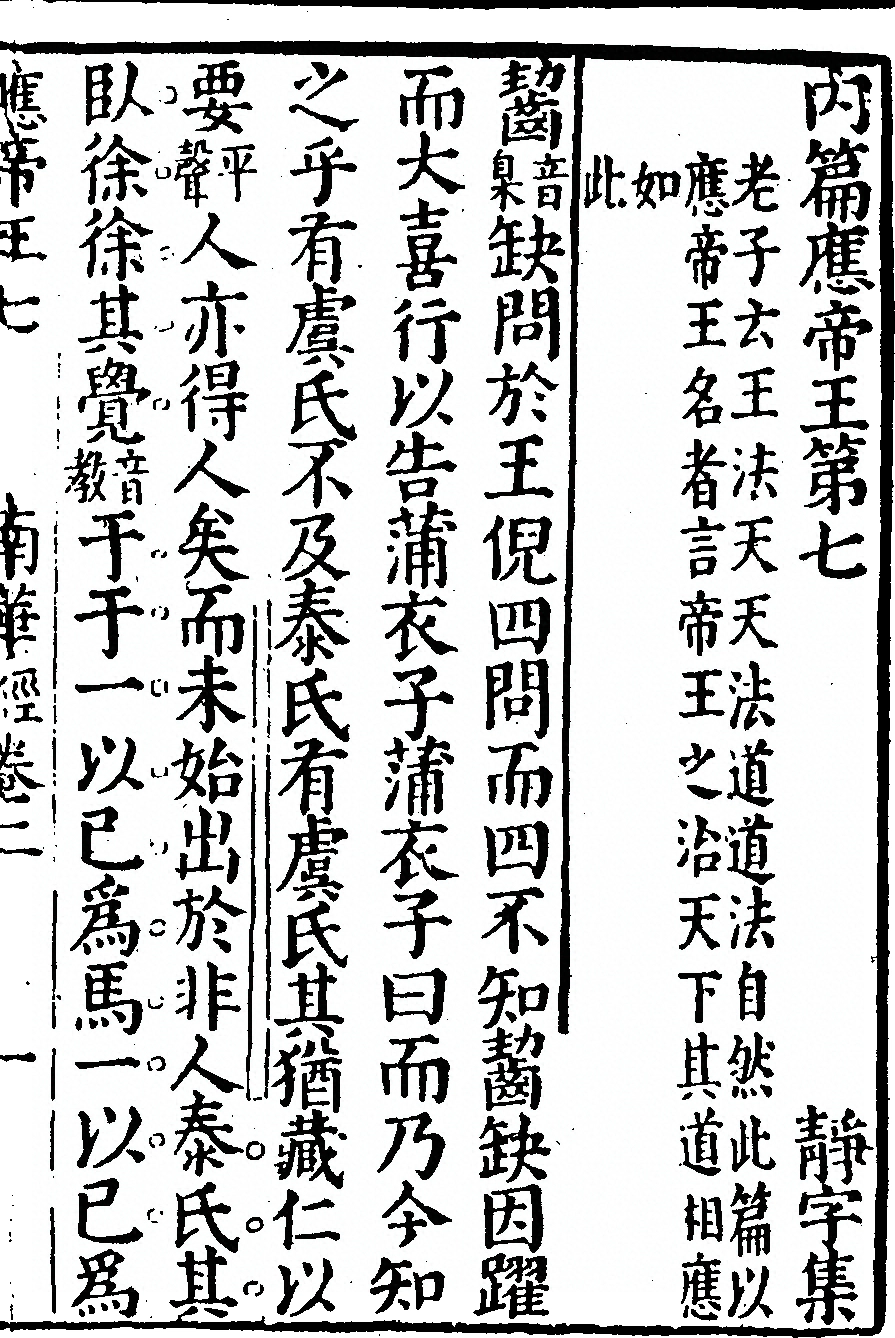 內篇應帝王第七 靜字集
老子云王法天天法道道法自然此篇以
應帝王名者言帝王之治天下其道相應
如
此
齧音臬缺問於王倪四問而四不知齧缺因躍
而大喜行以告蒲衣子蒲衣子曰而乃今知
之乎有虞氏不及泰氏有虞氏其猶藏仁以
要平聲人亦得人矣而未始出於非人泰氏其
臥徐徐其覺音教于于一以已爲馬一以已爲
應帝王七 南華經卷二 一